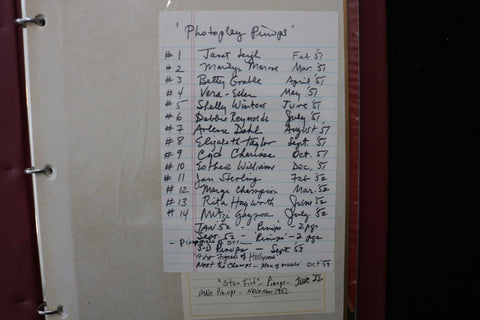 'Photoplay Pinups'
#1 Janet Leigh Feb '51
#2 Marilyn Monroe Mar. '51
#3 Betty Grable April '51
#4 Vera-Ellen May '51
#5 Shelly Winters June '51
#6 Debbie Reynolds July '51
#7 Arlene Dahl August '51
#8 Elizabeth Taylor Sept. '51
#9 Cyd Charisse Oct. '51
#10 Esther Williams Dec. '51
#11 Jan Sterling Feb '52
#12 Marge Champion Mar. '52
#13 Rita Hayworth June '52
#14 Mitzi Gaynor July '52
JAN 52 - 'Pinups' - 2 pgs
Sept. 52 - 'Pinups' - 2 pgs
3-D Pinups - Sept. '53
Figures of Hollywood"
Meet the Champs - Oct '53
"Star Fish" - Pinups - June '52
Male Pin-ups - November 1957